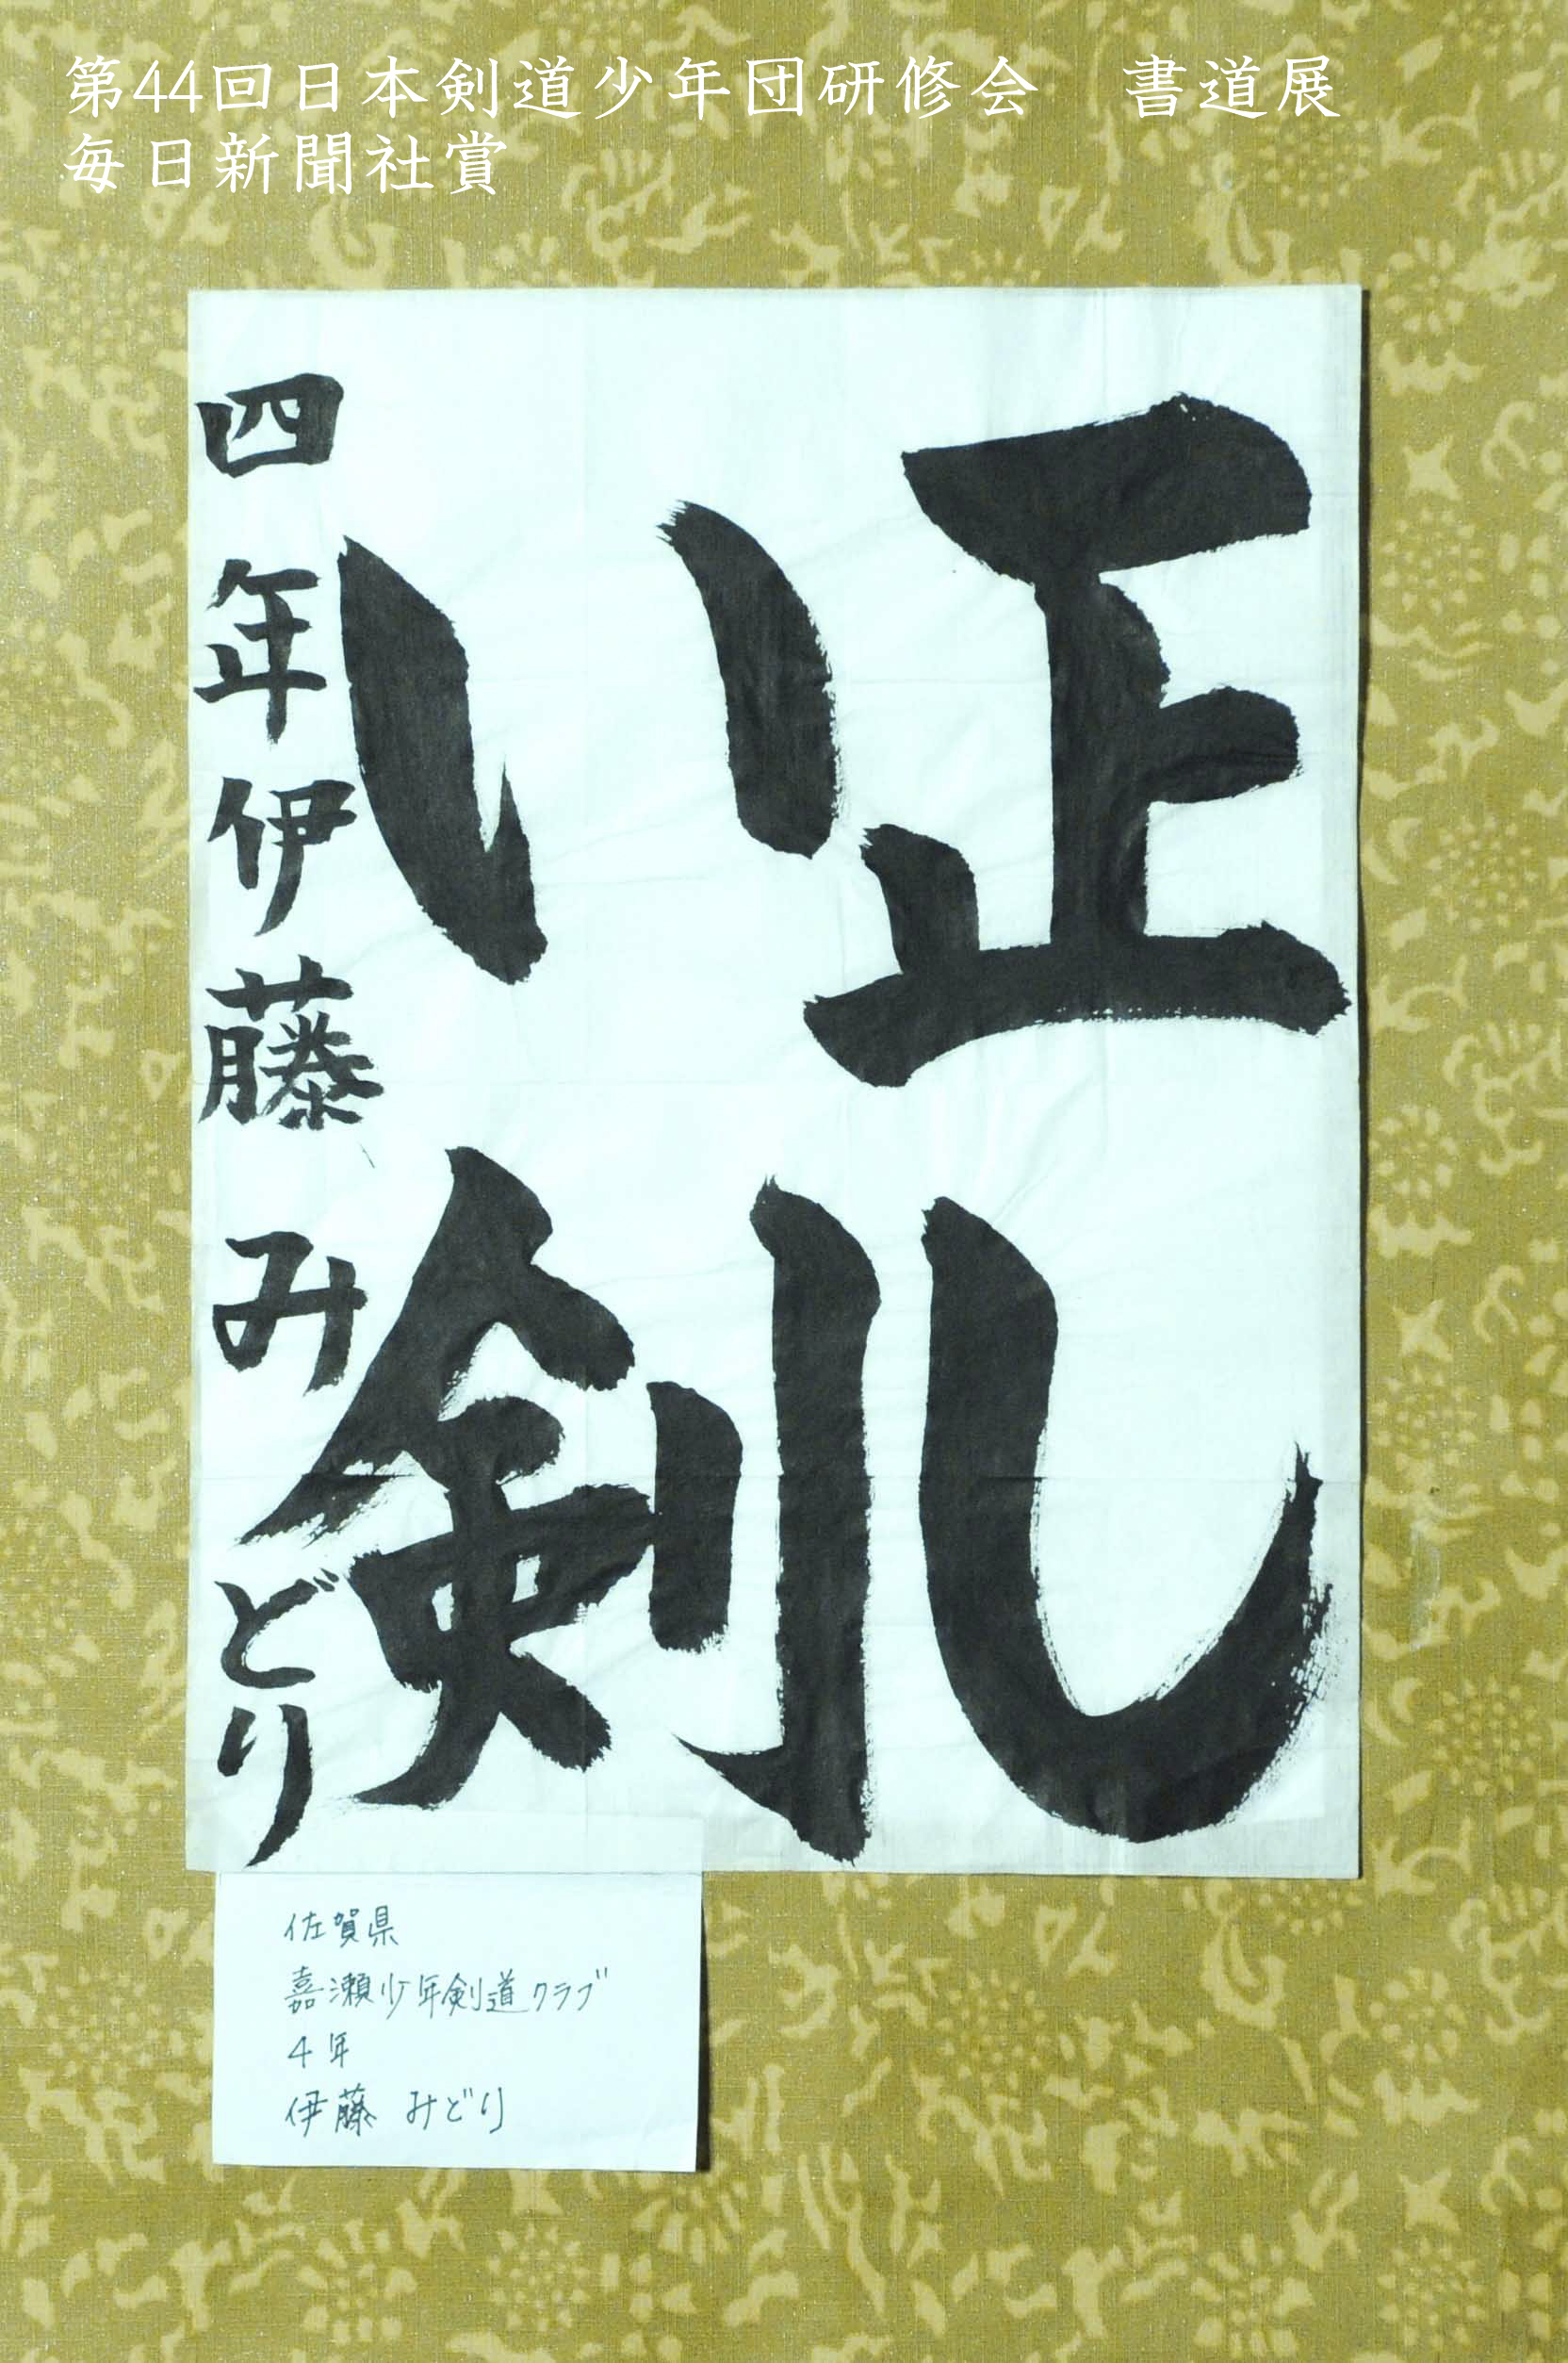 第44回日本剣道少年団研修会　書道展
毎日新聞社賞
正し
い剣
四年伊藤みどり
佐賀県
嘉瀬少年剣道クラブ
4年
伊藤 みどり